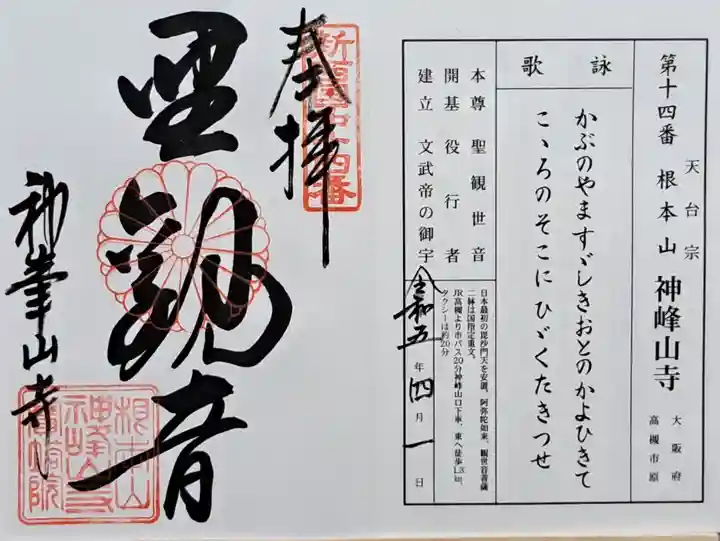 第十四番 天台宗 根本山 神峰山寺 大阪府 高槻市原
詠歌
かぶのやますゞしきおとのかよひきて
こゝろのそこにひゞくたきつせ
本尊 聖観世音
開基 役行者
建立 文武帝の御宇
日本最初の毘沙門天を安置、阿弥陀如来、観世音菩薩
二躰は国指定重文。
JR高槻より市バス20分神峰山口下車、東へ徒歩1.3km、
タクシーは約20分
令和五年四月一日
奉拝
新西国十四番
聖観音
神峯山寺
根本山
神峰山寺
宝塔院